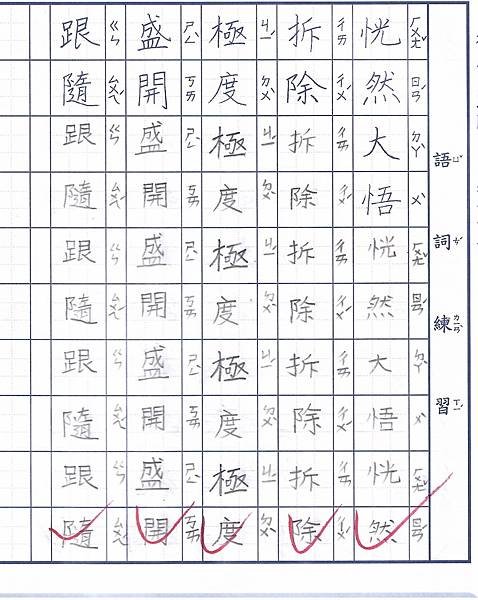 語詞練習
恍然大悟恍然大悟恍然
拆除拆除拆除拆除拆除
極度極度極度極度極度
盛開盛開盛開盛開盛開
跟隨跟隨跟隨跟隨跟隨